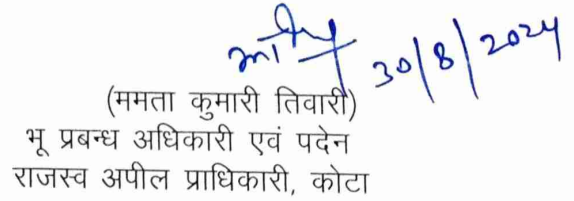 30/8/2024
(ममता कुमारी तिवारी)
भू प्रबन्ध अधिकारी एवं पदेन
राजस्व अपील प्राधिकारी, कोटा